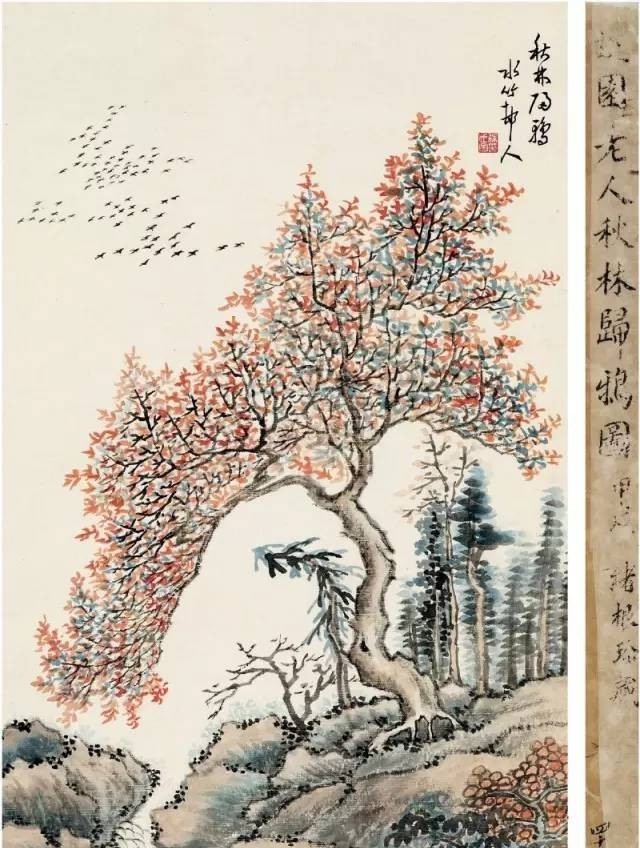 秋林歸鴉
水竹邨人
園老人秋林歸鴉圖
緒根珍藏